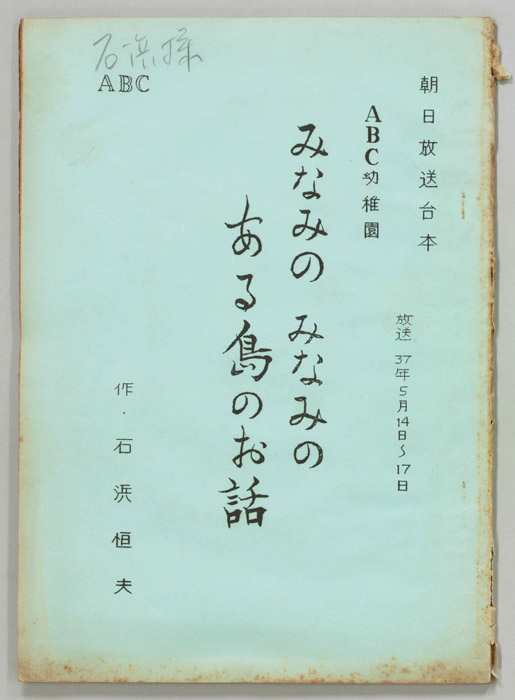 石浜様
ABC
朝日放送台本
ABC幼稚園
放送 37年5月14日~17日
みなみの みなみの
ある島のお話
作・石浜恒夫